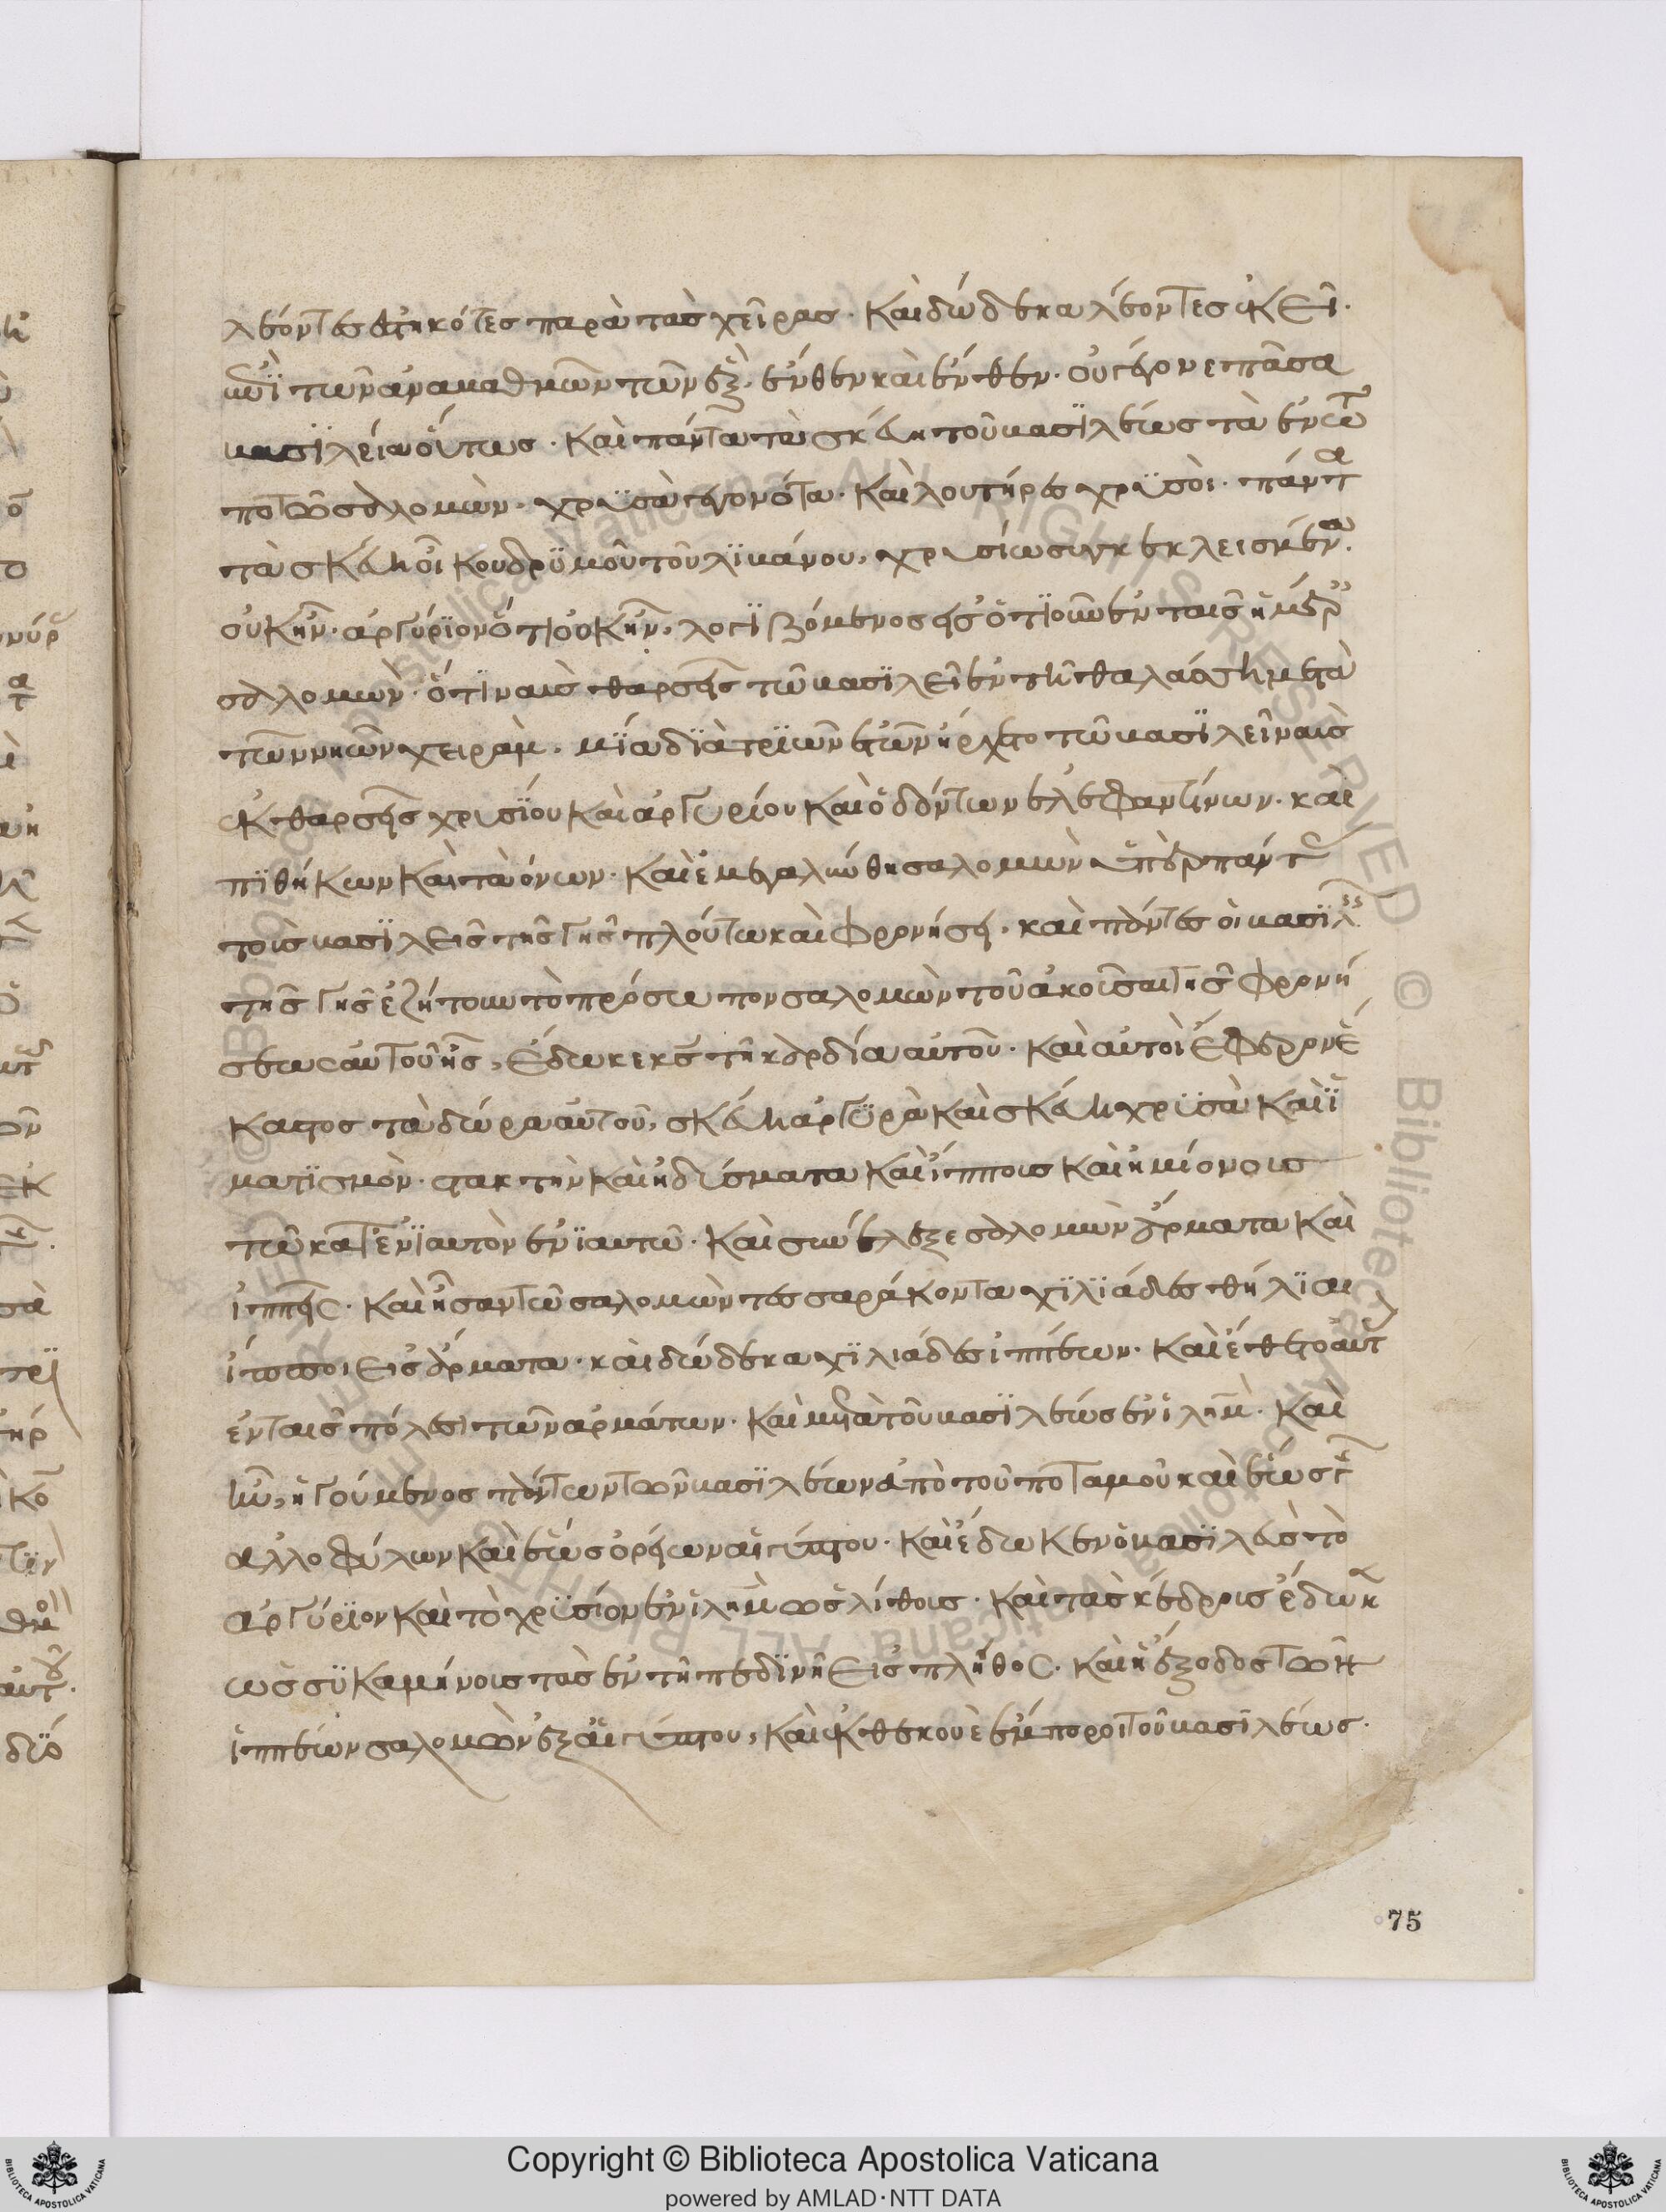 λέοντες ἑστηκότες παρὰ τὰς χεῖρας. Καὶ δώδεκα λέοντες ἐκεῖ.
ἐπὶ τῶν ἀναβαθμῶν τῶν ἓξ. ἔνθεν καὶ ἔνθεν. οὐ γέγονε πᾶσα
βασιλεία οὕτως. Καὶ πάντα τὰ σκεύη τοῦ βασιλέως τὰ ἐν τῶ
ποτῶ σαλομὼν. χρϋσὰ γεγονότα. Καὶ λουτήρες χρϋσοὶ. πάντα
τὰ σκεύη οἴκου δρϋμοῦ τοῦ λϊβάνου, χρυσίω συγκεκλεισμένα.
οὐκ ἦν. ἀργύρϊον ὅτι οὐκ ἦν, λογϊζόμενος ἐν ταῖς ἡμέραις
σαλομὼν. ὅτϊ ναῦς θαρσεῖς τῶ βασϊλεῖ ἐν τῆ θαλάσση μετὰ
τῶν νηῶν χειρὰμ. μία δϊὰ τρϊῶν ἐτῶν ἤρχετο τῶ βασϊλεῖ ναῦς
ἐκ θαρσεῖς χρυσίου καὶ ἀργυρίου καὶ ὀδόντων ἐλεφαντίνων. καὶ
πϊθήκων καὶ ταόνων. Καὶ ἐμεγαλύνθη σαλομὼν ὑπὲρ πάντας
τοὺς βασϊλεῖς τῆς γῆς πλούτω καὶ φρονήσει. καὶ πάντες οἱ βασϊλεῖς
τῆς γῆς ἐζήτουν τὸ πρόσωπον σαλομὼν τοῦ ἀκοῦσαι τῆς φρονή
σεως αὐτοῦ ἧς, ἔδωκε κς τῆ καρδία αὐτοῦ. Καὶ αὐτοὶ ἔφερον ἕ
καστος τὰ δῶρα αὐτοῦ, σκεύη ἀργϋρὰ καὶ σκεύη χρϋσὰ καὶ ἱ
ματϊσμὸν. στακτὴν καὶ ἡδύσματα καὶ ἵππους καὶ ἡμιόνους
τὸ κατ' ἐνϊαυτὸν ἐνϊαυτῶ. Καὶ συνέλεξε σαλομὼν ἅρματα καὶ
ἱππεῖς. Καὶ ἦσαν τῶ σαλομὼν τεσσαράκοντα χϊλϊάδες θήλϊαι
ἵπποι εἰς ἅρματα. καὶ δώδεκα χϊλιάδες ἱππέων. Καὶ ἔθετο αὐτὰς
ἐν ταῖς πόλεσι τῶν ἁρμάτων. Καὶ μετὰ τοῦ βασϊλέως ἐν ἱλημ. Καὶ
ἦν, ἡγούμενος πάντων τῶν βασϊλέων ἀπὸ τοῦ ποταμοῦ καὶ ἕως γῆς
ἀλλοφύλων καὶ ἕως ὁρίων αἰγύπτου. Καὶ ἔδωκεν ὁ βασϊλεὺς τὸ
ἀργύρϊον καὶ τὸ χρϋσίον ἐν ἱλημ ὡς λίθους. Καὶ τὰς κέδρους ἔδωκεν
ὡς σϋκαμήνους τὰς ἐν τῆ πεδϊνῆ εἰς πλῆθος. Καὶ ἡ ἔξοδος τῶν
ἱππέων σαλομὼν ἐξ αἰγύπτου, Καὶ ἐκ θεκουὲ ἔμποροι τοῦ βασϊλέως.
75